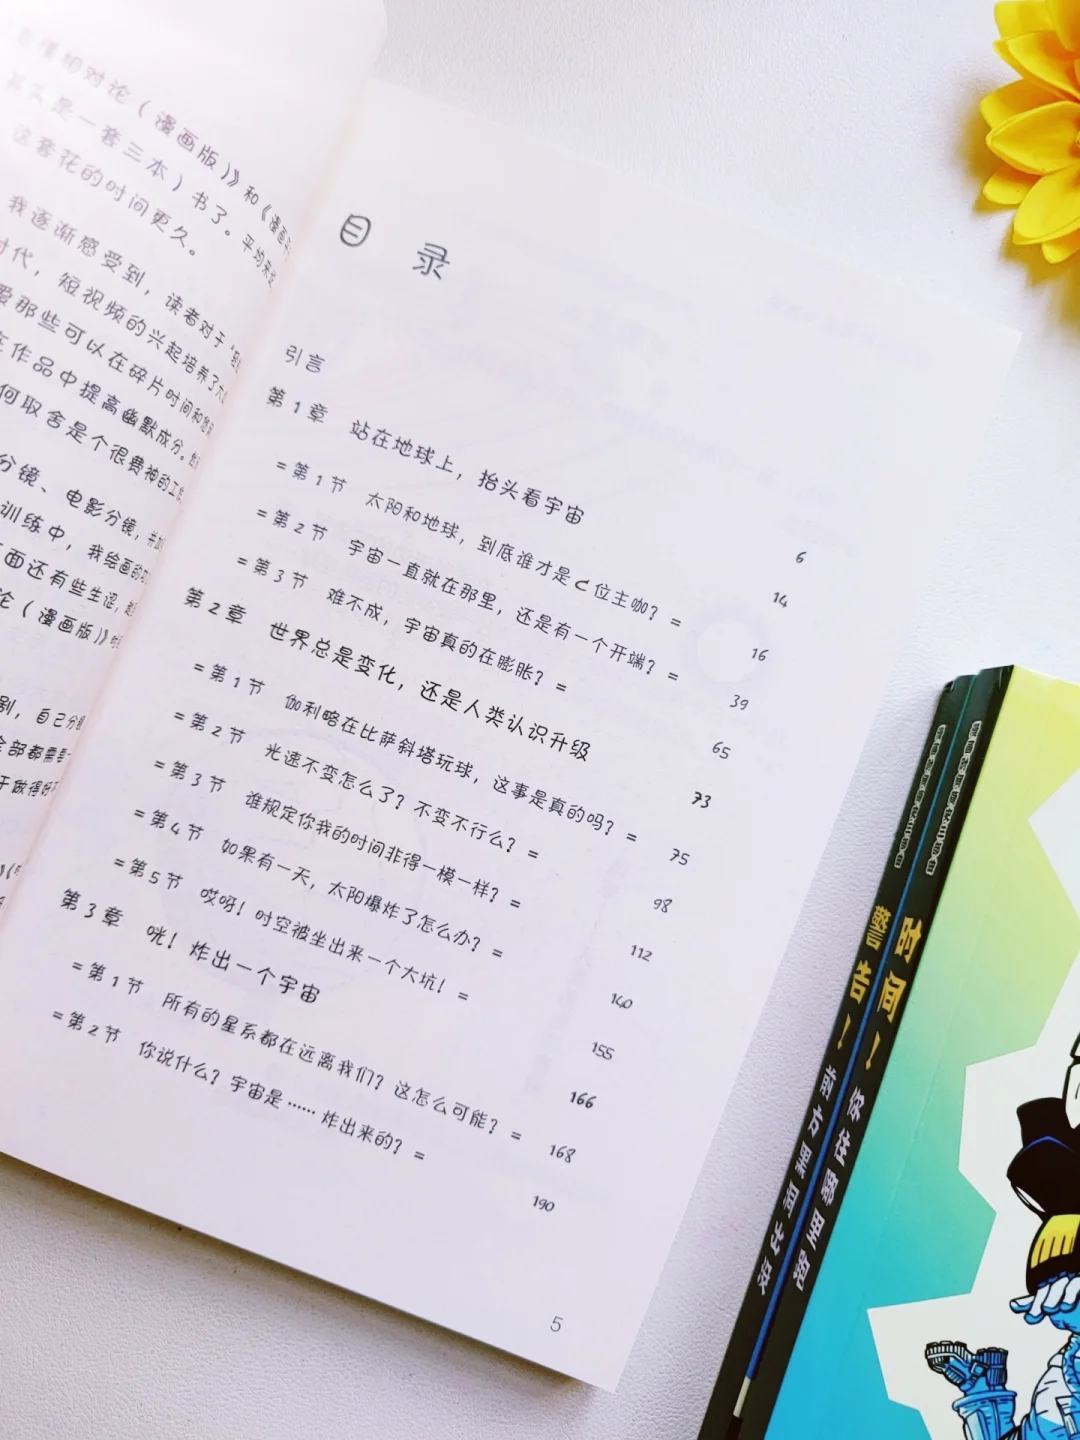 懂相对论(漫画版)》和《漫画
其实是一套三本)书了。平均来
这套花的时间更久。
我逐渐感受到,读者对于“
时代,短视频的兴起培养了大
爱那些可以在碎片时间和
在作品中提高幽默成分。
何取舍是个很费神的工
分镜、电影分镜,并
训练中,我绘画的
面还有些生涩,
论(漫画版)》
剧,自己分
全部都需要
于做得好
目 录
引言 6
第1章 站在地球上,抬头看宇宙 14
=第1节 太阳和地球,到底谁才是C位主咖?= 16
=第2节 宇宙一直就在那里,还是有一个开端?= 39
=第3节 难不成,宇宙真的在膨胀?= 65
第2章 世界总是变化,还是人类认识升级 73
=第1节 伽利略在比萨斜塔玩球,这事是真的吗?= 75
=第2节 光速不变怎么了?不变不行么?= 98
=第3节 谁规定你我的时间非得一模一样?= 112
=第4节 如果有一天,太阳爆炸了怎么办?= 140
=第5节 哎呀!时空被坐出来一个大坑!= 155
第3章 咣!炸出一个宇宙 166
=第1节 所有的星系都在远离我们?这怎么可能?= 168
=第2节 你说什么?宇宙是……炸出来的?= 190
5
警告!前方黑洞出没
时间!你往哪里跑